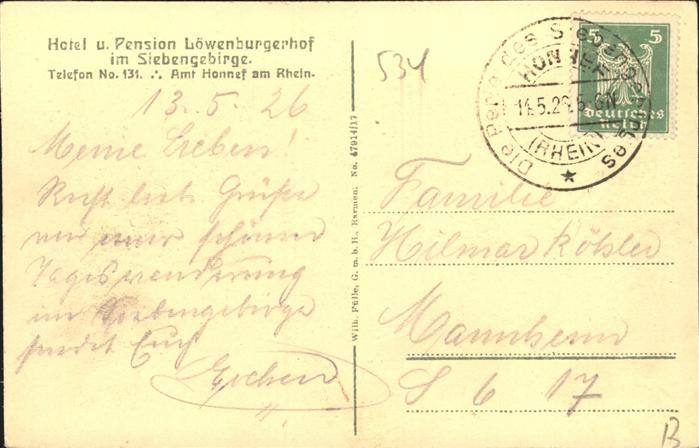 Hotel u. Pension Löwenburgerhof
im Siebengebirge.
Telefon No. 131. ∴ Amt Honnef am Rhein.
13.5.26
Meine Lieben!
Recht herzl. Grüße
von einer schönen
Tageswanderung
im Siebengebirge
sendet Euch
Jochen
Wilh. Fülle, G. m. b. H., Barmen. No. 47914/17
534
Die Perle des Siebengebirges
HONNEF
14.5.26. 6-
(RHEIN)
5 5
Deutsches
Reich
Familie
Hilmar Köhler
Mannheim
S 6 17
B